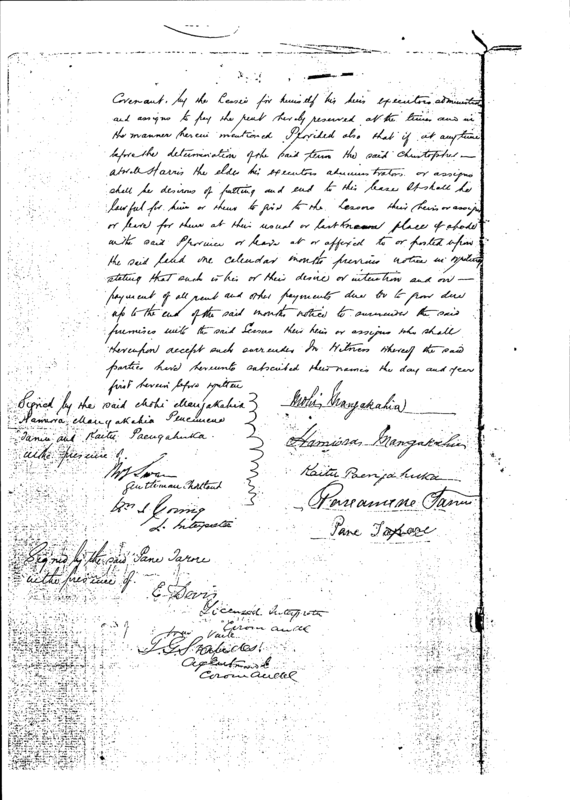 Covenant. by the Lessee for himself his heirs executors administrators
and assigns to pay the rent hereby reserved at the times and in
the manner herein mentioned Provided also that if at any time
before the determination of the said term the said Christopher
Harris the elder his executors administrators or assigns
shall be desirous of putting and end to this lease It shall be
lawful for him or them to give to the Lessors their heirs or assigns
or leave for them at their usual or last known place of abode
in the said Province or leave at or affixed to or posted upon
the said land one calendar months previous notice in writing
stating that such is his or their desire or intention and on
payment of all rent and other payments due or to grow due
up to the end of the said months notice to surrender the said
premises unto the said Lessors their heirs or assigns who shall
thereupon accept such surrender In Witness whereof the said
parties have hereunto subscribed their names the day and year
first herein before written
Signed by the said Mohi Mangakahia
Hamiora Mangakahia
and Kaitu
in the presence of
Mohi Mangakahia
Hamiora Mangakahia
Kaitu
Gentleman
L. Interpreter
Pane
Signed by the said Pane Tarore
in the presence of
E Davis
Licensed Interpreter
Coromandel
Coromandel